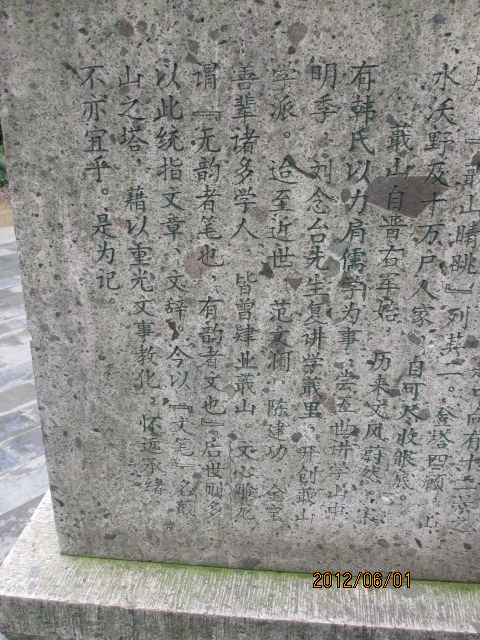 『蕺山晴眺』列其二。登塔四顾，山
水沃野及十万户人家，自可尽收眼底。
蕺山自晋右军始，历来文风蔚然，宋
有韩氏以力肩儒学为事，尝五世讲学山中。
明季，刘念台先生复讲学蕺里，开创蕺山
学派。迨至近世，范文澜、陈建功、金宝
善辈诸多学人，皆曾肄业蕺山。文心雕龙
谓『无韵者笔也，有韵者文也』后世则多
以此统指文章、文辞。今以『文笔』名蕺
山之塔，藉以重光文事教化，怀远承绪，
不亦宜乎。是为记。
2012/06/01